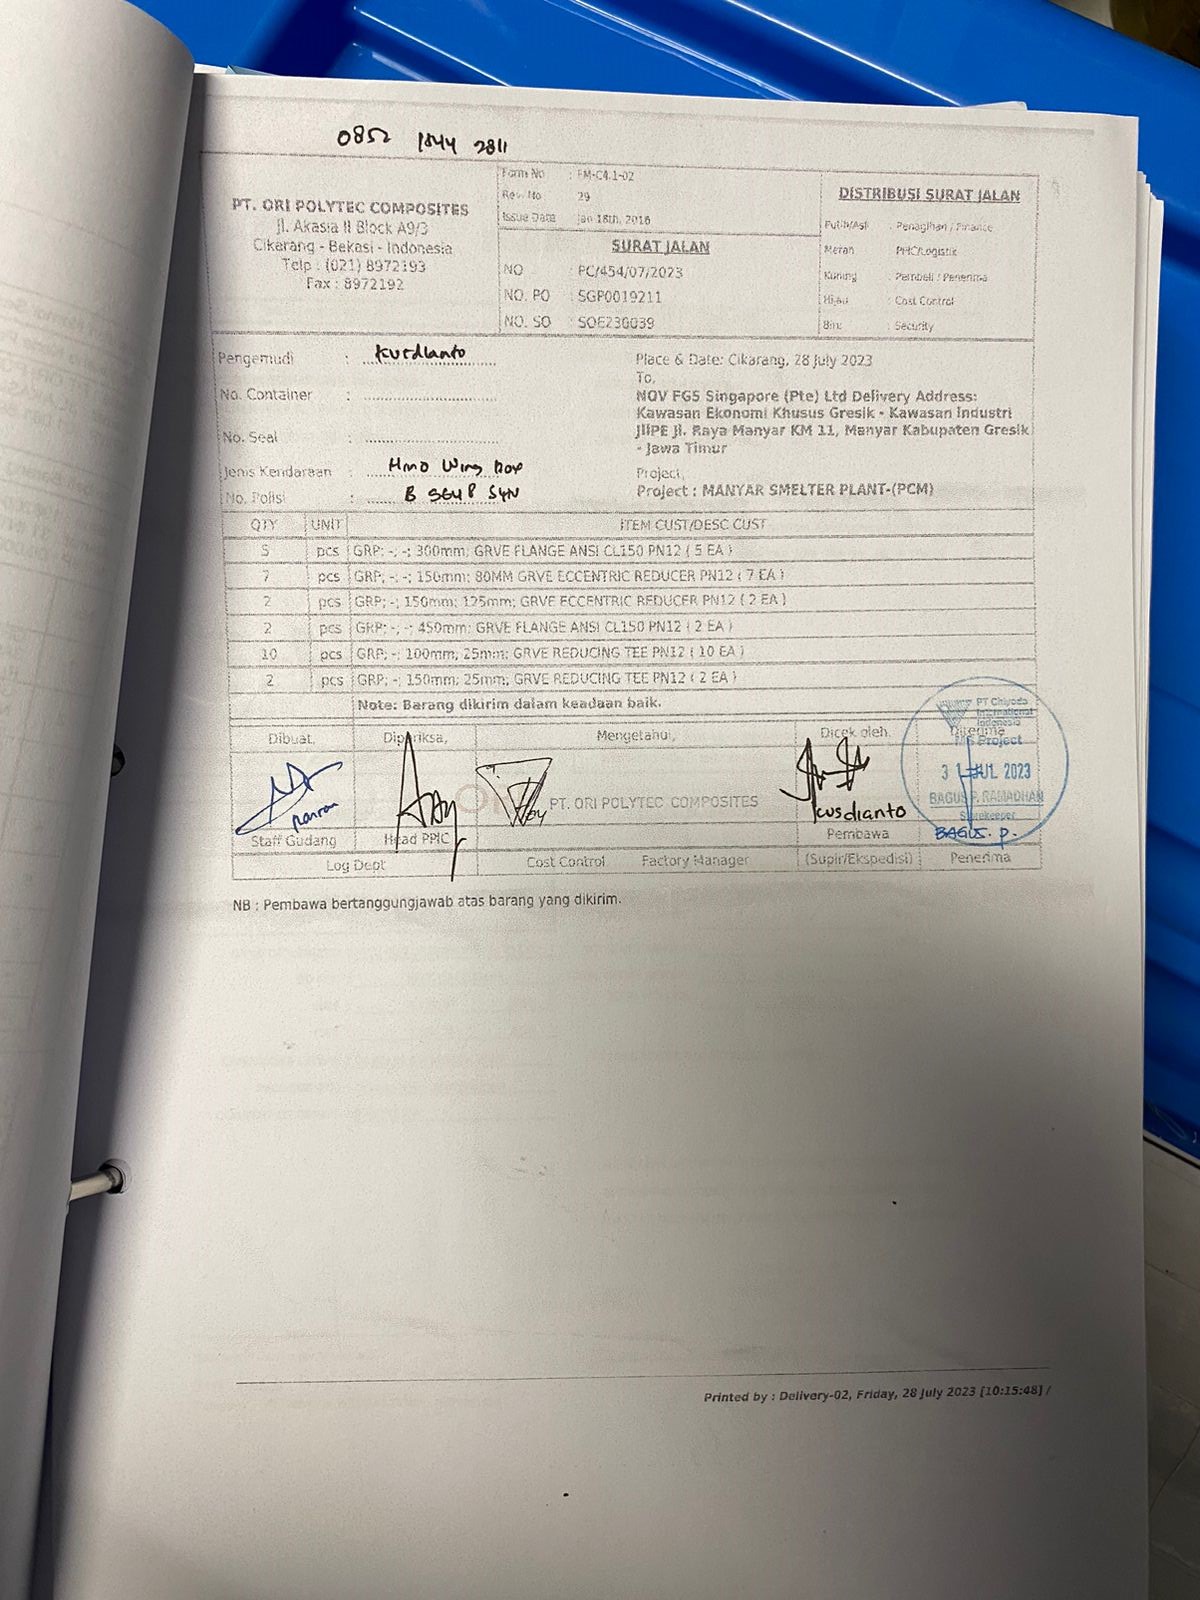 0852 1844 2811
PT. ORI POLYTEC COMPOSITES
Jl. Akasia II Block A9/3
Cikarang - Bekasi - Indonesia
Telp : (021) 8972193
Fax : 8972192
Form No : FM-C4.1-02
Rev. No 29
Issue Date Jan 18th, 2016
SURAT JALAN
NO : PC/454/07/2023
NO. PO : SGP0019211
NO. SO : SOE230039
DISTRIBUSI SURAT JALAN
Putih/Asli : Penagihan / Finance
Merah PPIC/Logistik
Kuning : Pembeli / Penerima
Hijau : Cost Control
Biru : Security
Pengemudi : Kusdianto
No. Container : ....................
No. Seal : ....................
Jenis Kendaraan : Hino Wing Box
No. Polisi : B 9648 SYN
Place & Date: Cikarang, 28 July 2023
To,
NOV FGS Singapore (Pte) Ltd Delivery Address:
Kawasan Ekonomi Khusus Gresik - Kawasan Industri
JIIPE Jl. Raya Manyar KM 11, Manyar Kabupaten Gresik
- Jawa Timur
Project,
Project : MANYAR SMELTER PLANT-(PCM)
QTY UNIT ITEM CUST/DESC CUST
5 pcs GRP; -; -; 300mm; GRVE FLANGE ANSI CL150 PN12 ( 5 EA )
7 pcs GRP; -; -; 150mm; 80MM GRVE ECCENTRIC REDUCER PN12 ( 7 EA )
2 pcs GRP; -; 150mm; 125mm; GRVE ECCENTRIC REDUCER PN12 ( 2 EA )
2 pcs GRP; -; -; 450mm; GRVE FLANGE ANSI CL150 PN12 ( 2 EA )
10 pcs GRP; -; 100mm; 25mm; GRVE REDUCING TEE PN12 ( 10 EA )
2 pcs GRP; -; 150mm; 25mm; GRVE REDUCING TEE PN12 ( 2 EA )
Note: Barang dikirim dalam keadaan baik.
Dibuat, Diperiksa, Mengetahui, Dicek oleh, Diterima
PT Chiyoda
International
Indonesia
MS Project
31 JUL 2023
BAGUS P. RAMADHAN
Storekeeper
BAGUS. P.
PT. ORI POLYTEC COMPOSITES
Kusdianto
Staff Gudang Head PPIC Pembawa
Log Dept Cost Control Factory Manager (Supir/Ekspedisi) Penerima
NB : Pembawa bertanggungjawab atas barang yang dikirim.
Printed by : Delivery-02, Friday, 28 July 2023 [10:15:48] /